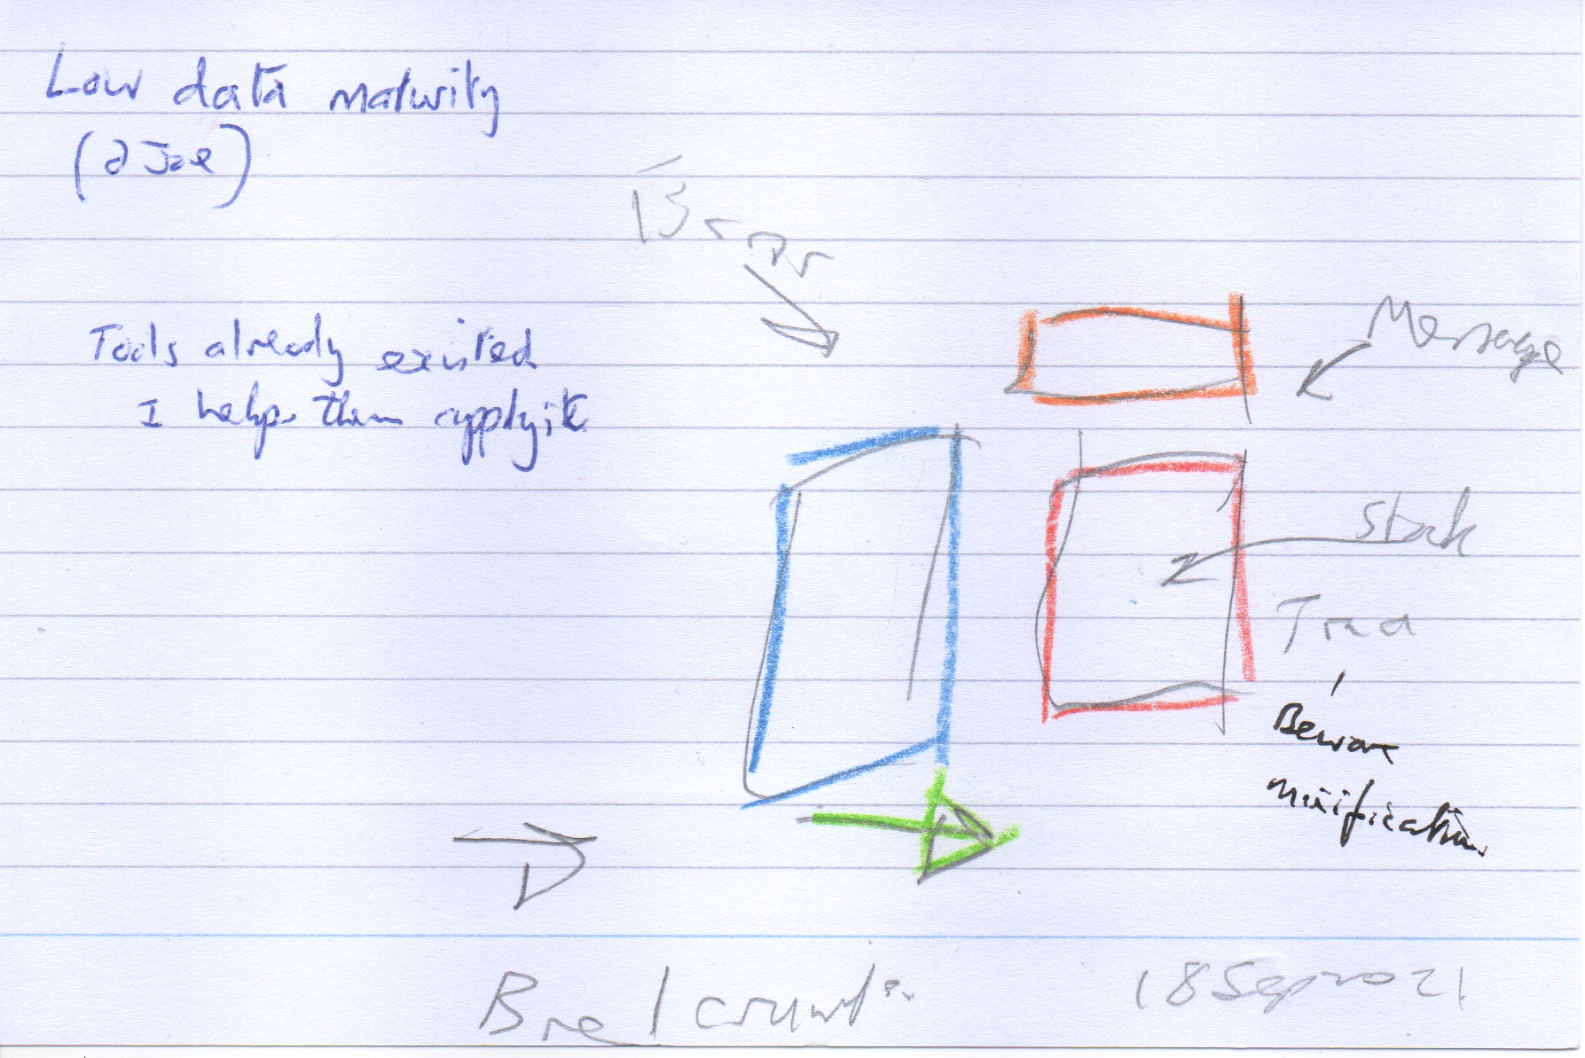 Low data maturity
(@ Joe)
Tools already existed
I helps them apply it
Message
Stack
Beware
minification
18 Sep 2021